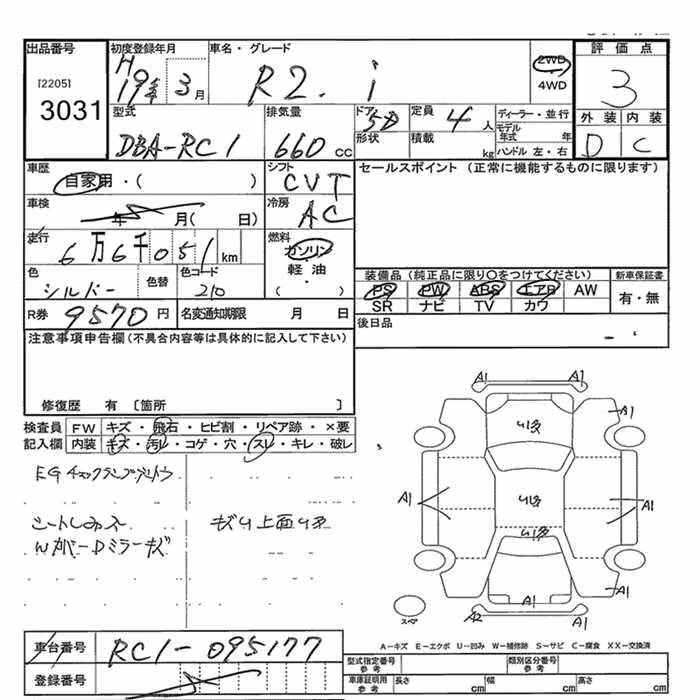 出品番号 初度登録年月 車名・グレード 評価点
[2205] H19年 3月 R2. i 2WD 4WD 3
3031 型式 排気量 ドア 5D 定員 4人 ディーラー・並行 外装 内装
DBA-RC1 660cc 形状 積載 kg モデル年式 年 D C
ハンドル 左・右
車歴 シフト セールスポイント (正常に機能するものに限ります)
自家用・( ) CVT
車検 冷房
年 月( 日) AC
走行 燃料
6万6千051km ガソリン
色 色替 色コード 軽油 装備品 (純正品に限り○をつけてください) 新車保証書
シルバー 210 ( ) PS PW ABS エアB AW 有・無
SR ナビ TV カワ
R券 9570円 名変通知期限 月 日 後日品
注意事項申告欄 (不具合内容等は具体的に記入して下さい)
修復歴 有 〔箇所 〕
検査員 FW キズ・飛石・ヒビ割・リペア跡・×要
記入欄 内装 キズ・汚レ・コゲ・穴・スレ・キレ・破レ
EGチェックランプ
シートしみ
Dミラーキズ
上面
A1 A1
A1
A1 A1
A1
A1
A2 A1
スペア
A-キズ E-エクボ U-凹み W-補修跡 S-サビ C-腐食 XX-交換済
車台番号 RC1-095177
登録番号
型式指定番号 参考 類別区分番号 参考
車庫証明用 参考 長さ cm 幅 cm 高さ cm